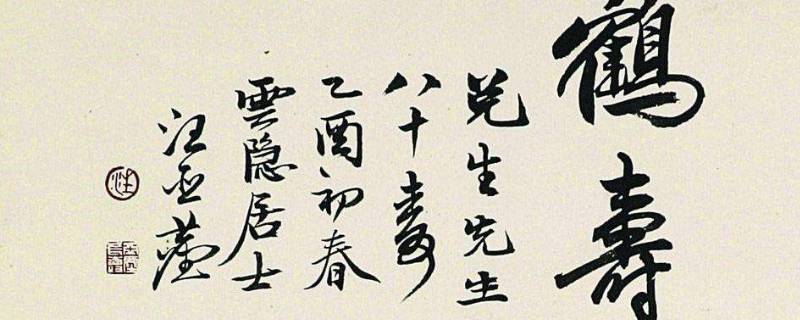 鶴壽
生先生
八十壽
乙酉初春
雲隐居士
汪
汪